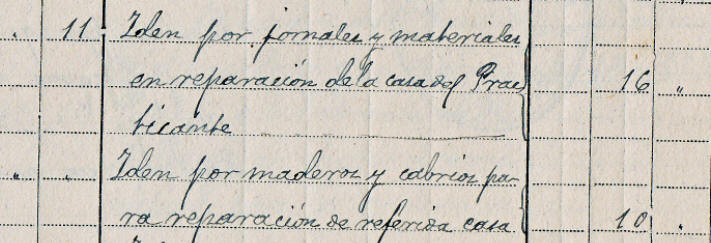 " 11 Iden por jornales y materiales
en reparación de la casa del Prac
ticante 16 "
" " Iden por maderos y cabrios pa-
ra reparación de referida casa 10 "